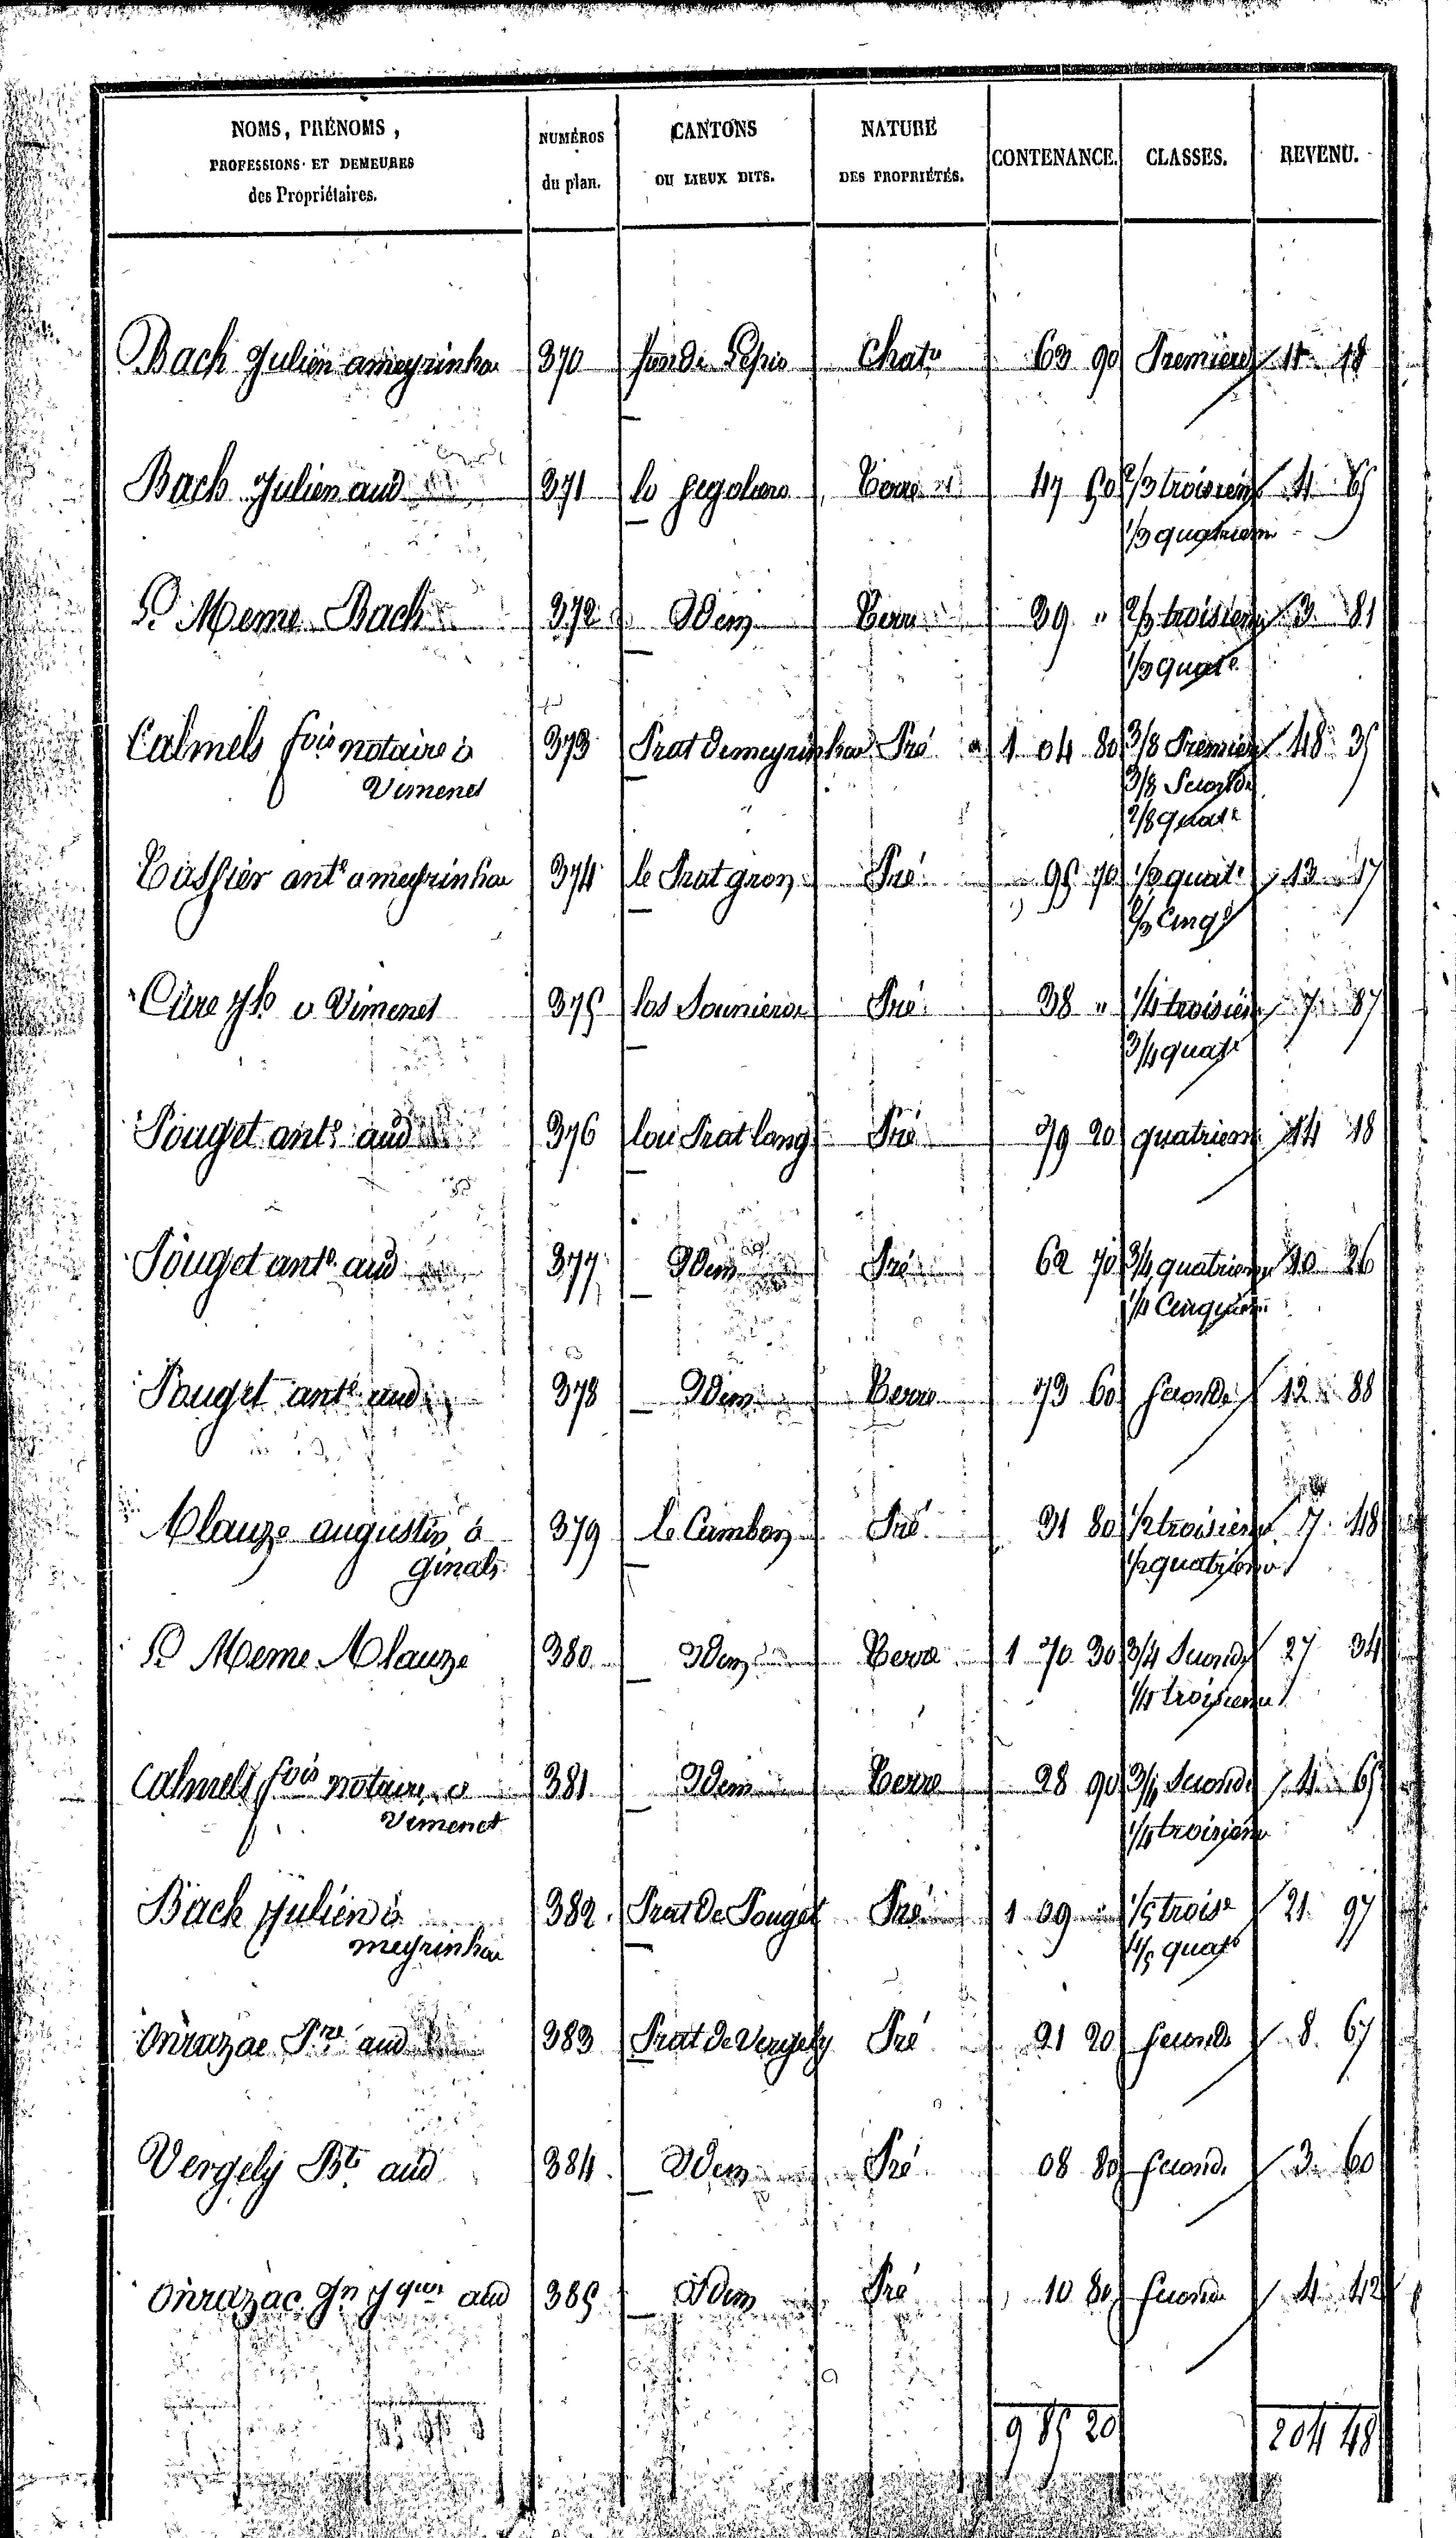 NOMS, PRÉNOMS, NUMÉROS CANTONS NATURE CONTENANCE. CLASSES. REVENU.
PROFESSIONS ET DEMEURES du plan. OU LIEUX DITS. DES PROPRIÉTÉS.
des Propriétaires.
Bach Julien a meyrinhac 370 Chat 63 90 Premiere 11 18
Bach Julien aud 371 Terre 47 60 2/3 troisieme 4 65
1/3 quatrieme
Le Meme Bach 372 Idem Terre 39 " 2/3 troisieme 3 81
1/3 quatr
Calmels fois notaire à 373 Prat de meyrinhac Pré 1 04 80 3/8 Premiere 48 35
Vimenet 3/8 Seconde
2/8 quatr
ante a meyrinhac 374 le Prat gron Pré 95 70 quatr 13 17
Cinq
a Vimenet 375 las Pré 38 " 1/4 troisieme 7 87
3/4 quatr
Pouget ante aud 376 lou Prat lang Pré 79 20 quatrieme 14 18
Pouget ante aud 377 Idem Pré 62 70 3/4 quatrieme 10 26
1/4 Cinquieme
Pouget ante aud 378 Idem Terre 73 60 seconde 12 88
Mauze augustin à 379 le Cambon Pré 31 80 1/2 troisieme 7 48
ginals 1/2 quatrieme
Le Meme Mauze 380 Idem Terre 1 70 30 3/4 Seconde 27 34
1/4 troisieme
Calmels fois notaire a 381 Idem Terre 28 90 3/4 Seconde 4 65
Vimenet 1/4 troisieme
Bach Julien à 382 Prat de Pouget Pré 1 09 " 1/5 trois 21 97
meyrinhac 4/5 quatr
Onrazac Pre aud 383 Prat de Vergely Pré 21 20 seconde 8 67
Vergely Bt aud 384 Idem Pré 08 80 seconde 3 60
Onrazac Jn Jques aud 385 Idem Pré 10 80 seconde 4 42
9 85 20 204 48